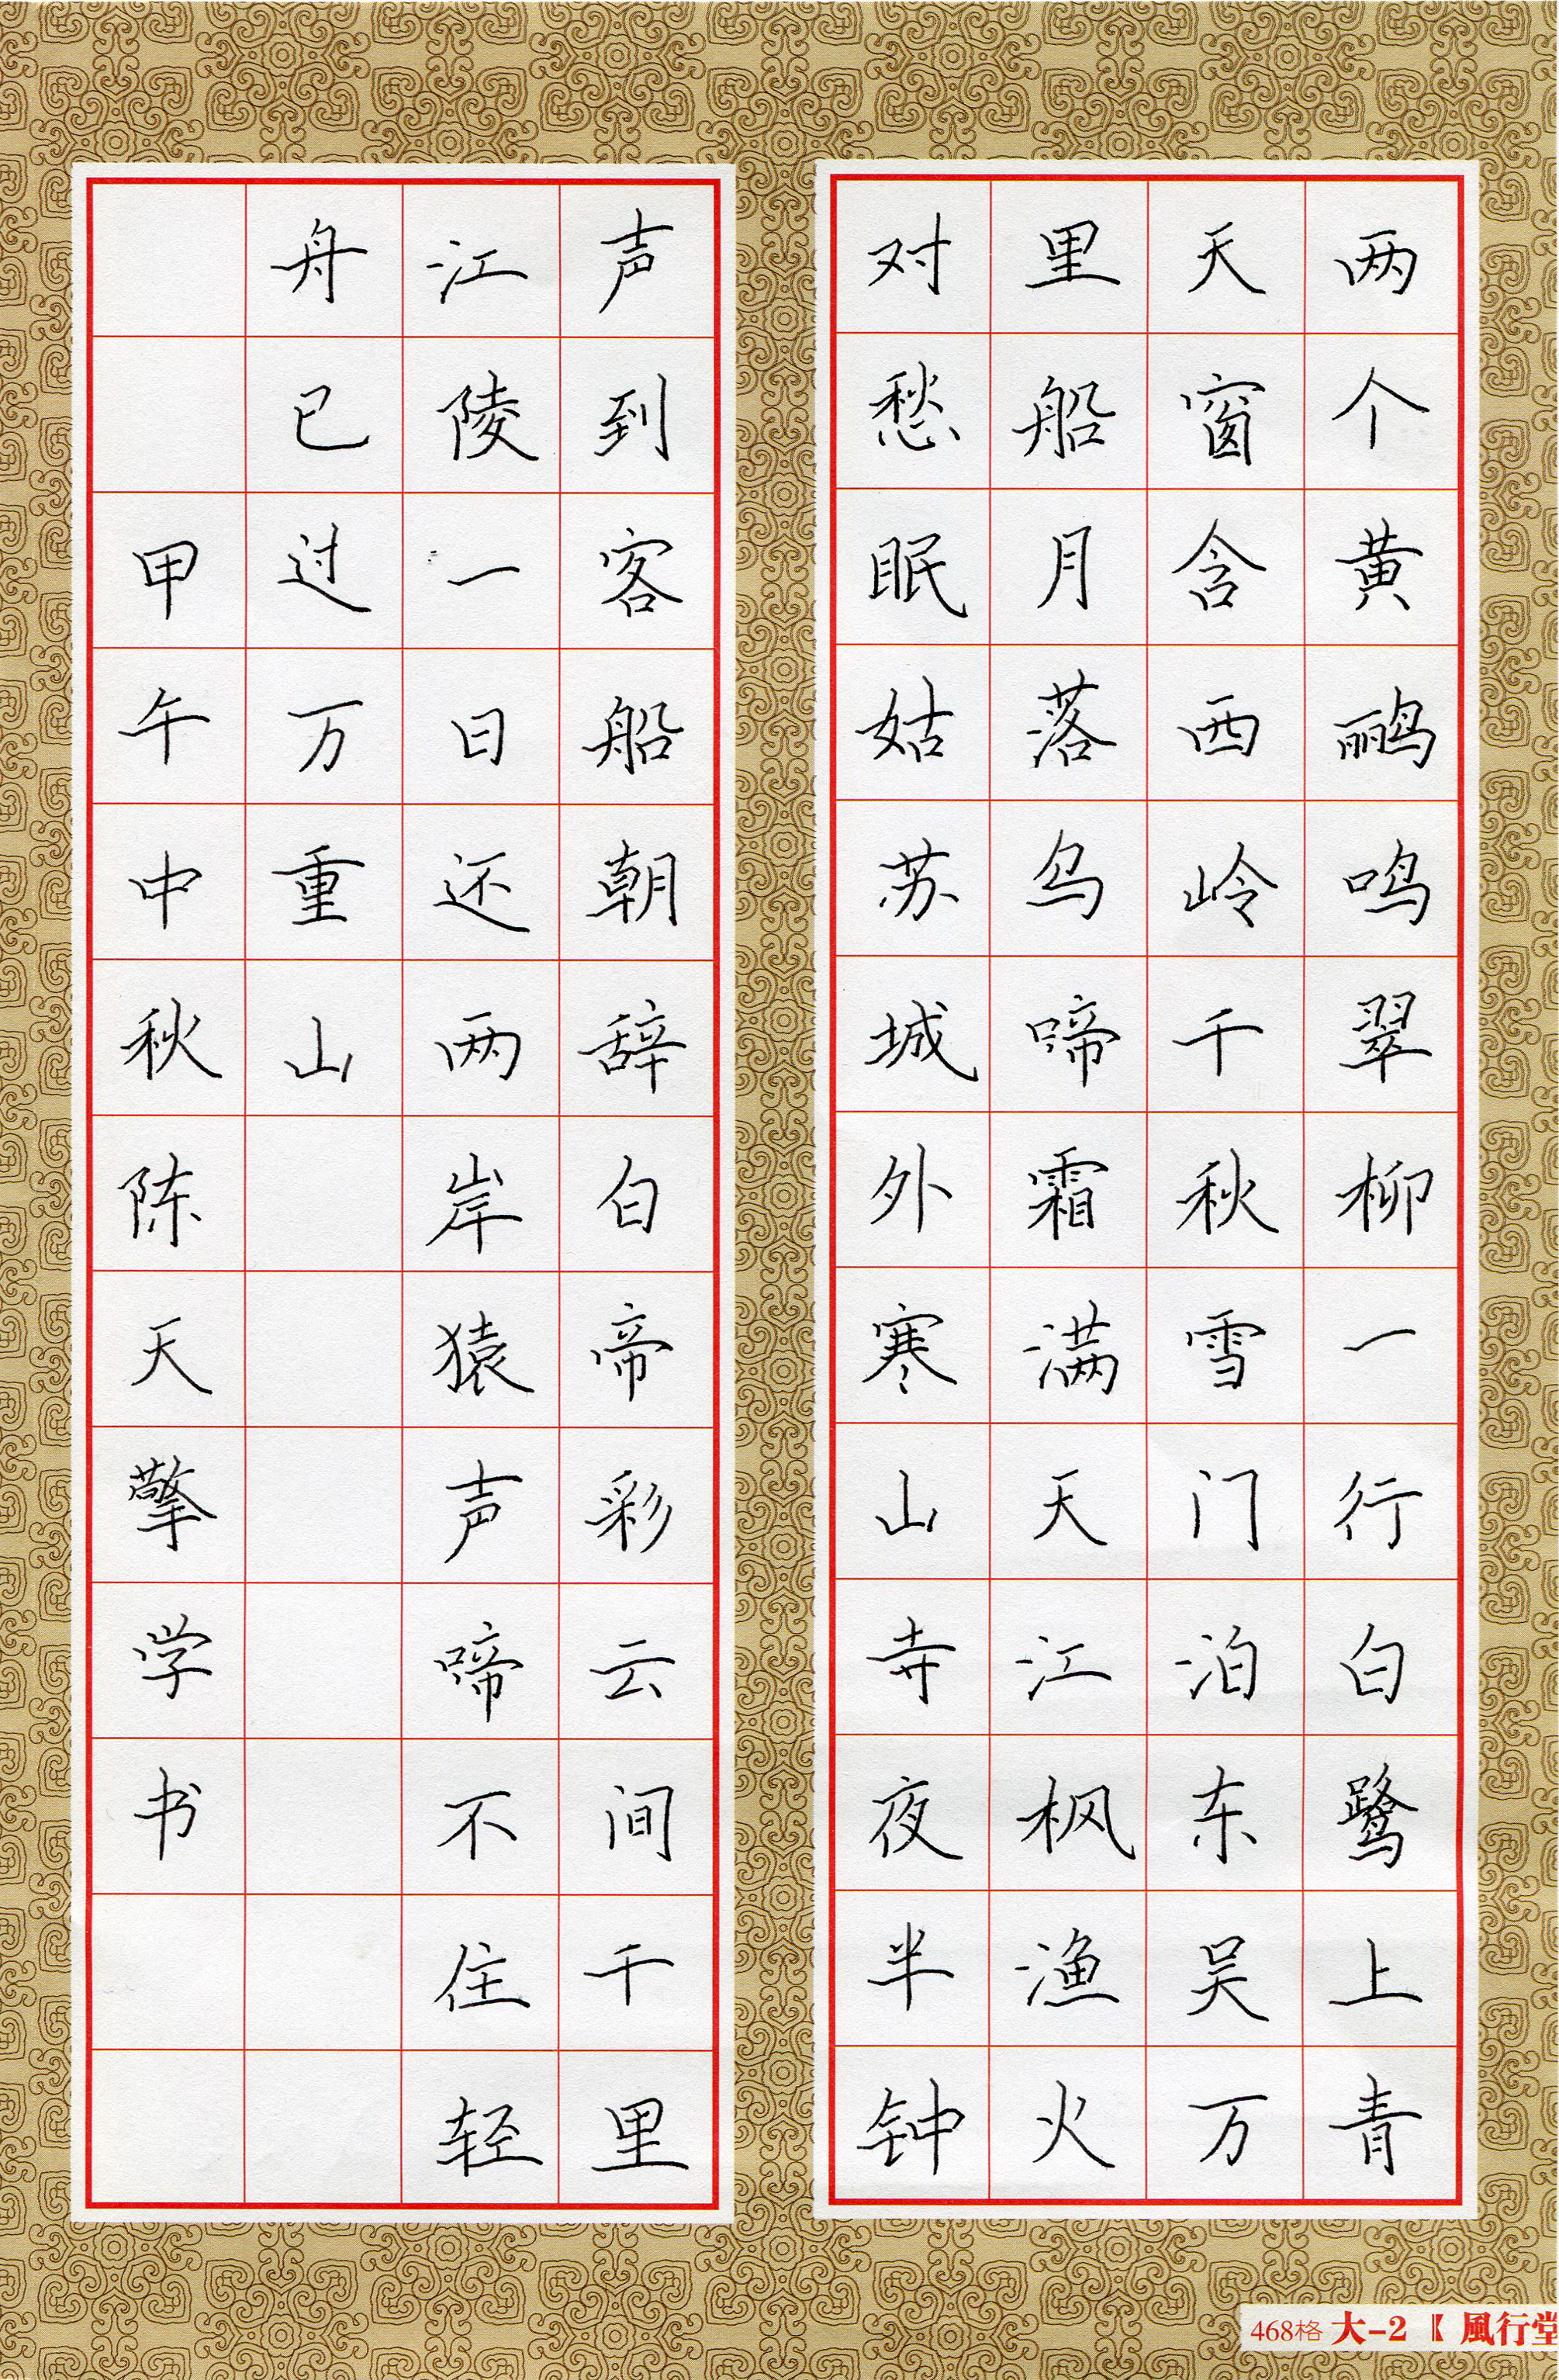 两个黄鹂鸣翠柳一行白鹭上青
天窗含西岭千秋雪门泊东吴万
里船月落乌啼霜满天江枫渔火
对愁眠姑苏城外寒山寺夜半钟
声到客船朝辞白帝彩云间千里
江陵一日还两岸猿声啼不住轻
舟已过万重山
甲午中秋陈天擎学书
468格 大-2 〖 風行堂